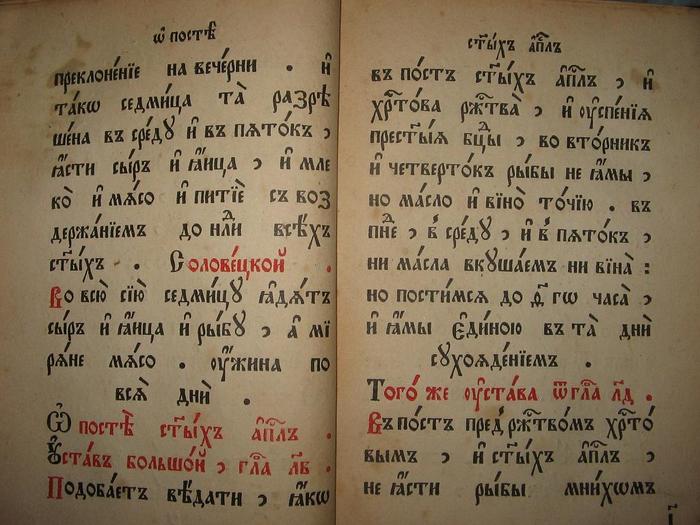 ѽ постѣ̀
преклоне́нїе на вече́рни . и҆
та́кѡ седми́ца та̀ разрѣ
ше́на въ сре́дꙋ и҆ въ пѧто́къ ,
ꙗ҆́сти сы́ръ и҆ ꙗ҆́ица , и҆ мле
ко̀ и҆ мѧ́со и҆ питїѐ съ воз
держа́нїемъ до нлⷣи всѣ́хъ
ст҃ы́хъ . Солове́цкой .
Во всю̀ сїю̀ седми́цꙋ ꙗ҆дѧ́тъ
сы́ръ и҆ ꙗ҆́ица и҆ ры́бꙋ , а҆ мі
рѧ́не мѧ́со . ᲂу҆́жина по
всѧ̀ дни̑ .
Ѽ постѣ̀ ст҃ы́хъ а҆пⷭ҇лъ .
Оу҆ста́въ большо́й , гла̀ лв҃ .
Подоба́етъ вѣ́дати , ꙗ҆́кѡ
ст҃ы́хъ а҆пⷭ҇лъ
въ по́стъ ст҃ы́хъ а҆пⷭ҇лъ , и҆
хрⷭ҇то́ва ржⷭ҇тва̀ , и҆ ᲂу҆спе́нїѧ
прест҃ы́ѧ бцⷣы , во вто́рникъ
и҆ четверто́къ ры́бы не ꙗ҆мы̀ ,
но ма́сло и҆ вїно̀ то́чїю . въ
пнⷣе , в̾ сре́дꙋ , и҆ в̾ пѧто́къ ,
ни ма́сла вкꙋша́емъ ни вїна̀ :
но пости́мсѧ до д҃ гѡ часа̀ ,
и҆ ꙗ҆мы̀ є҆ди́ною въ та̀ дни̑
сꙋхоѧде́нїемъ .
Того́ же ᲂу҆ста́ва ѿ гла̀ лд҃ .
Въ по́стъ пред̾ ржⷭ҇тво́мъ хрⷭ҇то́
вымъ , и҆ ст҃ы́хъ а҆пⷭ҇лъ ,
не ꙗ҆́сти ры́бы мни́хѡмъ